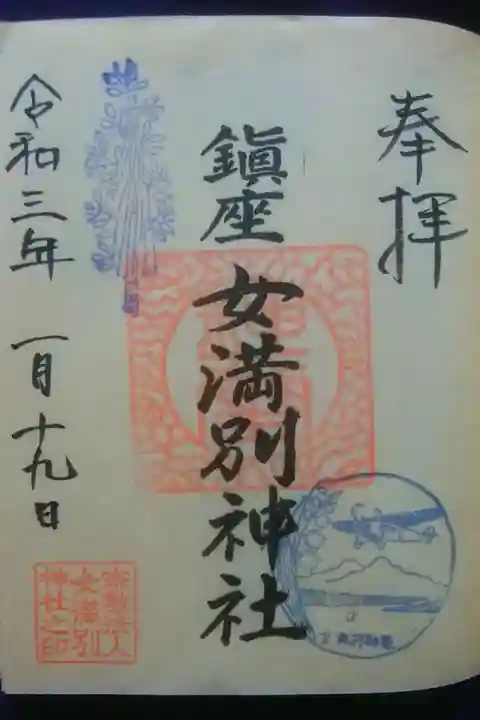 奉拝
鎮座
女満別神社
令和三年 一月十九日
宗教法人
女満別
神社之印